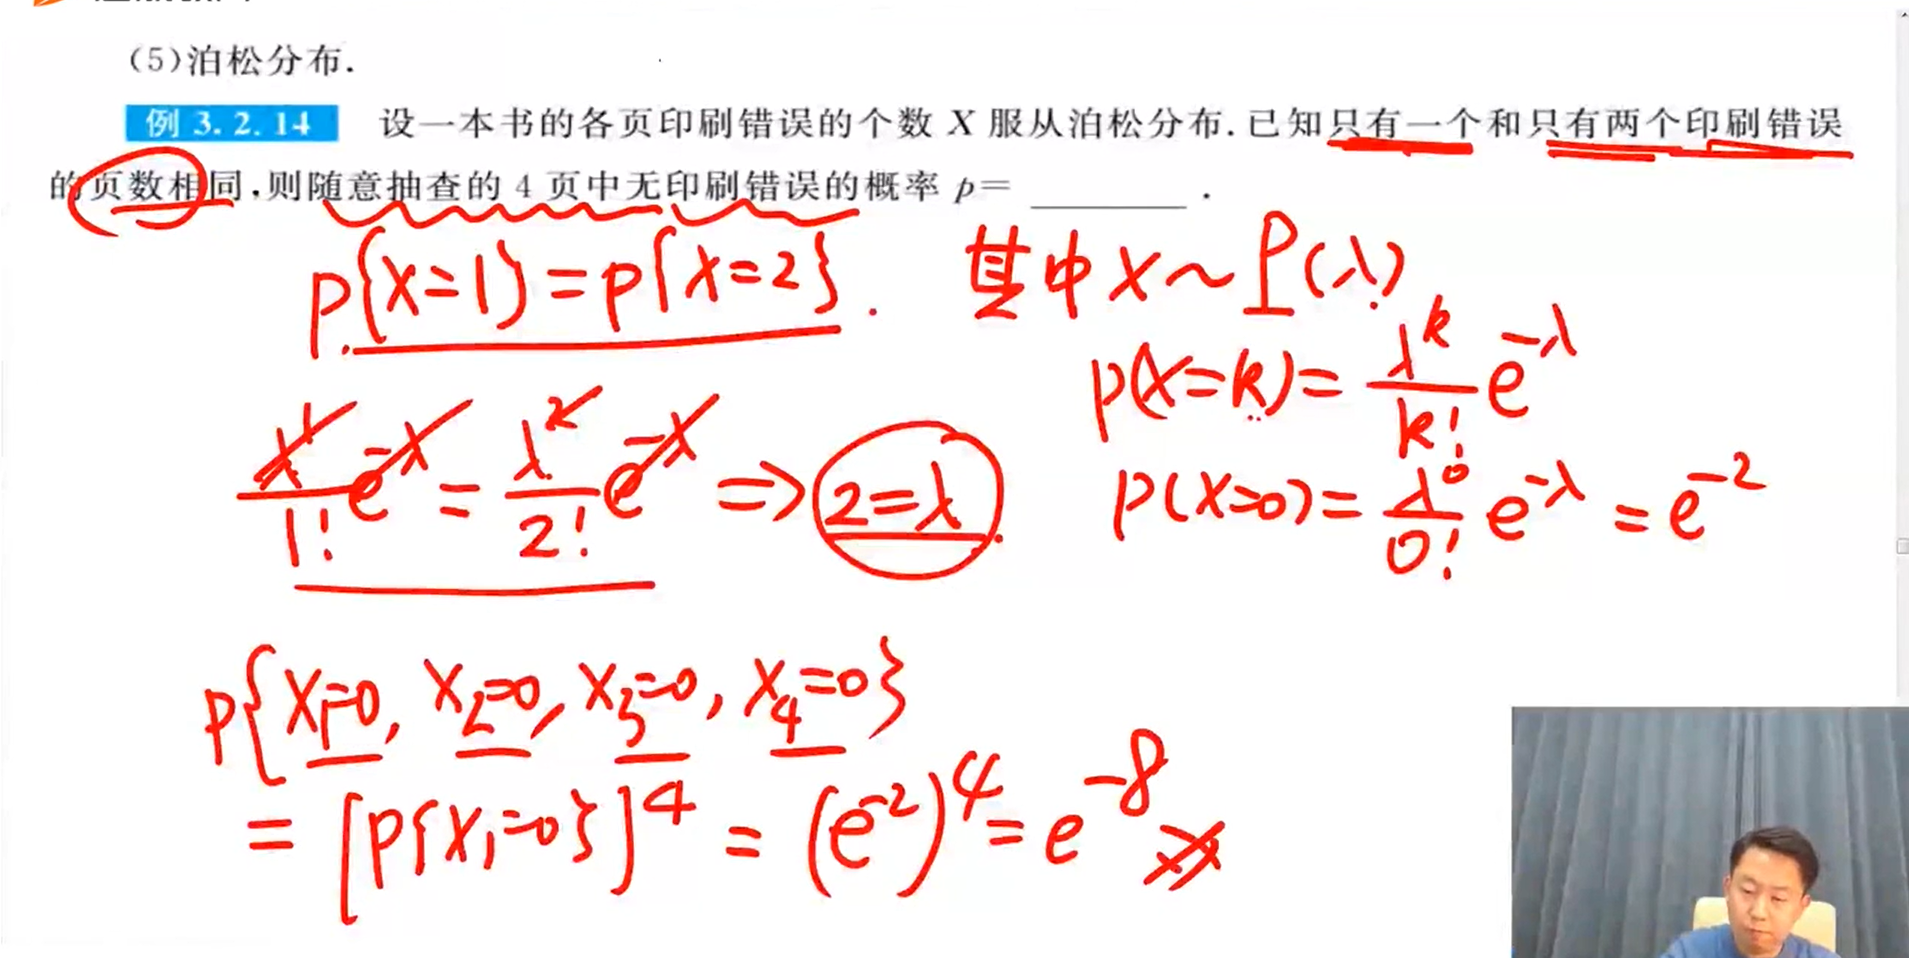 (5)泊松分布.
例 3.2.14 设一本书的各页印刷错误的个数 X 服从泊松分布.已知只有一个和只有两个印刷错误
的页数相同,则随意抽查的 4 页中无印刷错误的概率 p= ________ .
P{X=1}=P{X=2}. 其中 X~P(λ)
P(X=k)=λ^k/k! e^-λ
λ^1/1! e^-λ = λ^2/2! e^-λ ⇒ 2=λ
P(X=0)=λ^0/0! e^-λ = e^-2
P{X₁=0, X₂=0, X₃=0, X₄=0}
= [P{X₁=0}]^4 = (e^-2)^4 = e^-8